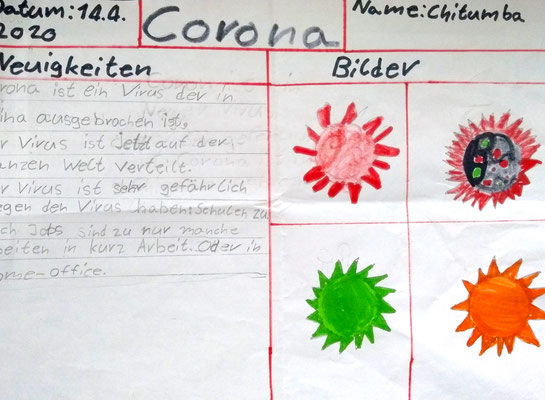 Datum: 14.4.
2020
Corona
Name: Chitumba
Neuigkeiten
Bilder
rona ist ein Virus der in
ina ausgebrochen ist.
r Virus ist jetzt auf der
anzen Welt verteilt.
r Virus ist sehr gefährlich
egen den Virus haben: Schulen zu
ch Jobs sind zu nur manche
beiten in kurz Arbeit. Oder in
ome-office.